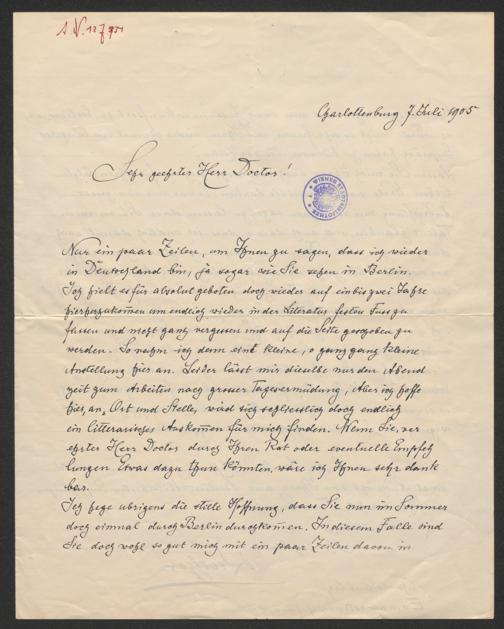 Charlottenburg 7. Juli 1905
Sehr geehrter Herr Doctor!
WIENER STADTBIBLIOTHEK
Nur ein paar Zeilen, um Ihnen zu sagen, dass ich wieder
in Deutschland bin, ja sogar wie Sie sehen in Berlin.
Ich hielt es für absolut geboten doch wieder auf ein bis zwei Jahre
hierherzukom̄en um endlich wieder in der Literatur festen Fuss zu
fassen und nicht ganz vergessen und auf die Seite geschoben zu
werden. So nahm ich denn eine kleine, o ganz ganz kleine
Anstellung hier an. Leider lässt mir dieselbe nur den Abend
zeit zum Arbeiten nach grosser Tagesermüdung, Aber ich hoffe
hier, an Ort und Stelle, wird sich schliesslich doch endlich
ein litterarisches Auskom̄en für mich finden. Wenn Sie, ver
ehrter Herr Doctor durch Ihren Rat oder eventuelle Empfeh
lungen Etwas dazu thun könnten, wäre ich Ihnen sehr dank
bar.
Ich hege übrigens die stille Hoffnung, dass Sie nun im Sommer
doch einmal durch Berlin durchkom̄en. In diesem Falle sind
Sie doch wohl so gut mich mit ein paar Zeilen davon in